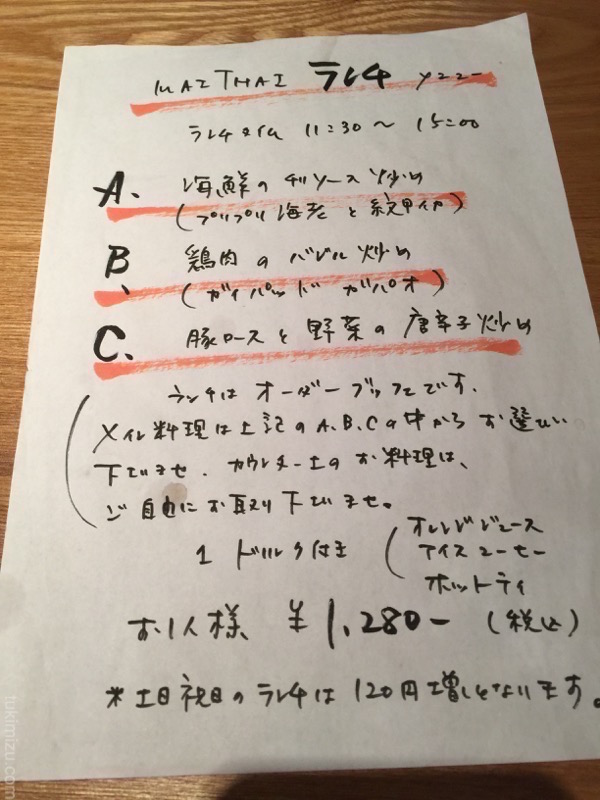 MAI THAI ランチ メニュー
ランチタイム 11:30〜15:00
A. 海鮮のチリソース炒め
(プリプリ海老と紋甲イカ)
B、 鶏肉のバジル炒め
(ガイパッド ガパオ)
C. 豚ロースと野菜の唐辛子炒め
ランチはオーダーブッフェです.
メイン料理は上記のA.B.Cの中からお選び
下さいませ. カウンター上のお料理は、
ご自由にお取り下さいませ。
1ドリンク付き
(オレンジジュース
アイスコーヒー
ホットティ
お1人様 ¥1,280- (税込)
*土日祝日のランチは120円増しとなります。
tukimizu.com